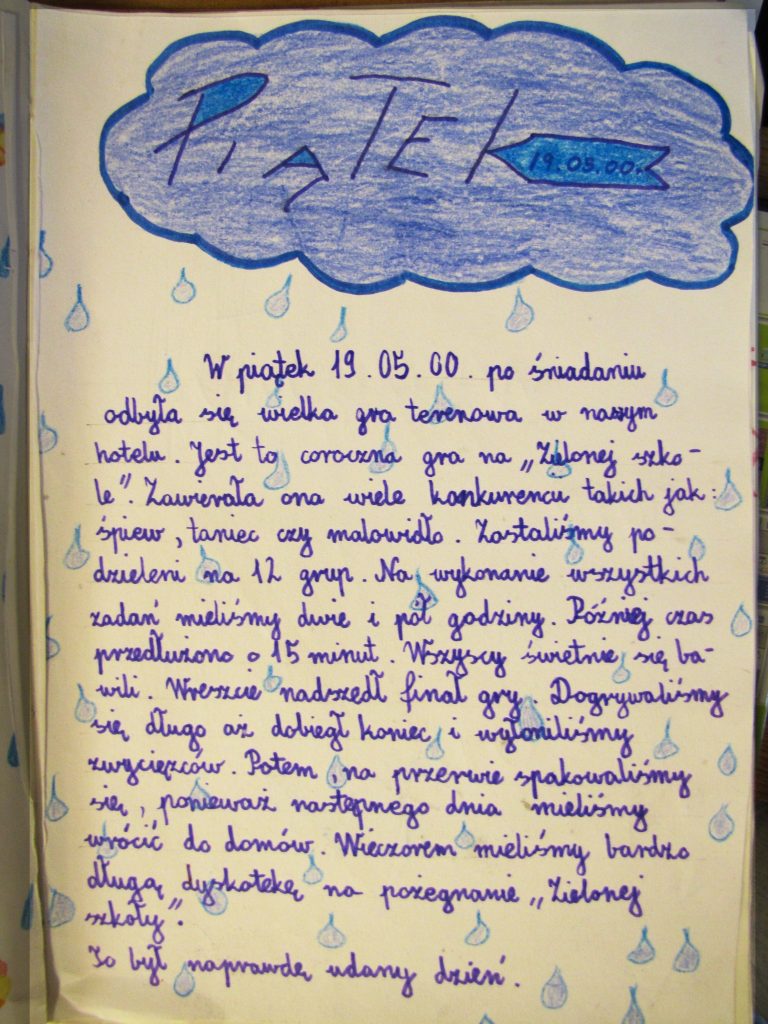 PIĄTEK 19.05.00.
W piątek 19.05.00. po śniadaniu
odbyła się wielka gra terenowa w naszym
hotelu. Jest to coroczna gra na „Zielonej szko-
le". Zawierała ona wiele konkurencji takich jak:
śpiew, taniec czy malowidło. Zostaliśmy po-
dzieleni na 12 grup. Na wykonanie wszystkich
zadań mieliśmy dwie i pół godziny. Później czas
przedłużono o 15 minut. Wszyscy świetnie się ba-
wili. Wreszcie nadszedł finał gry. Dogrywaliśmy
się długo aż dobiegł koniec i wyłoniliśmy
zwycięzców. Potem, na przerwie spakowaliśmy
się, ponieważ następnego dnia mieliśmy
wrócić do domów. Wieczorem mieliśmy bardzo
długą dyskotekę na pożegnanie „Zielonej
szkoły".
To był naprawdę udany dzień.